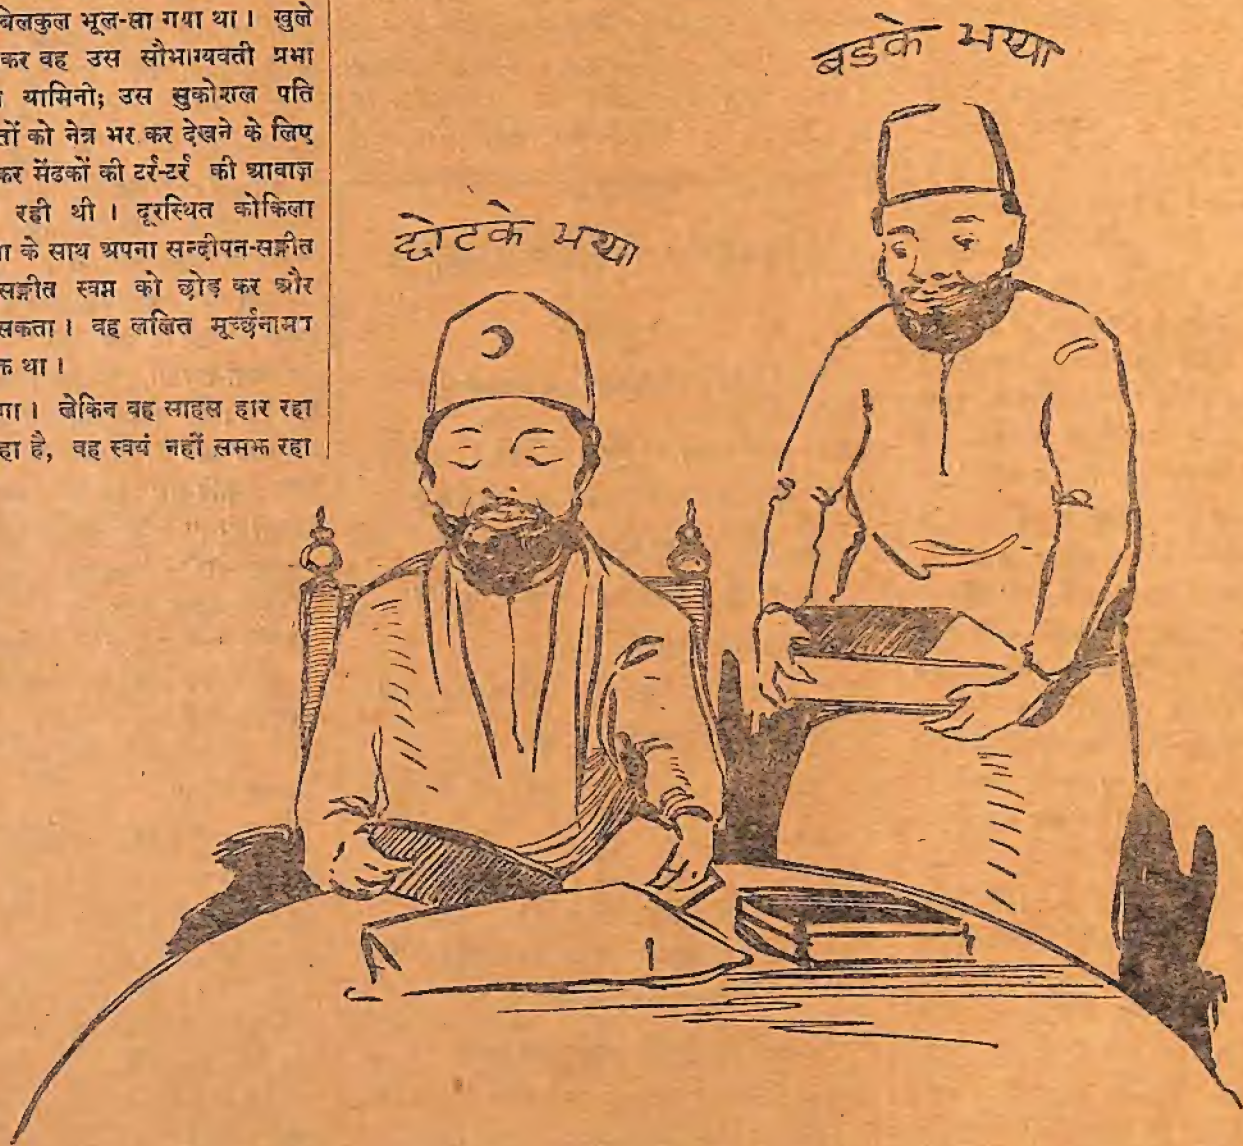 बिलकुल भूल-सा गया था। खुले
कर वह उस सौभाग्यवती प्रभा
यामिनी; उस सुकोशल पति
तों को नेत्र भर कर देखने के लिए
कर मेंढकों की टर्र-टर्र की आवाज़
रही थी। दूरस्थित कोकिला
ा के साथ अपना सन्दीपन-सङ्गीत
सङ्गीत स्वप्न को छोड़ कर और
सकता। वह ललित मूर्च्छनामय
क था।
गा। लेकिन वह साहस हार रहा
हा है, वह स्वयं नहीं समझ रहा
बडके भय्या
छोटके भय्या